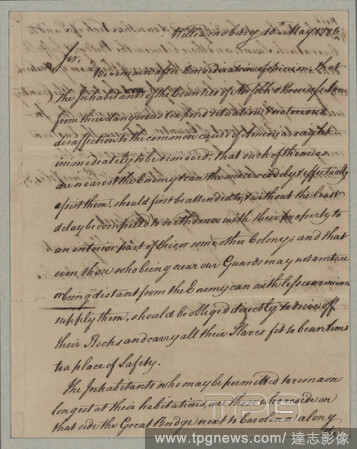 Williamsburg 10th May 1776
Sir,
We are under Consideration of opinion that
the Inhabitants of the Counties of Norfolk & Princess Anne
from their dangerous exposed situation & notorious
disaffection to the common cause of America ought
immediately to be removed; that such of them as
are nearest the Enemy & can the more readily & effectually
assist them, should first be attended to, & without the least
delay be compelled to withdraw with their property to
an interior part of this or some other Colony; and that
even those who being near our Guards may not venture
or being distant from the Enemy can with less convenience
supply them, should be obliged directly to drive off
their Stocks and carry all their Slaves fit to bear Arms
to a place of Safety.
The Inhabitants who may be permitted to remain
longest at their habitations, are those who reside on
that side the Great Bridge next to Carolina & along
TPG
www.tpgnews.com / 達志影像